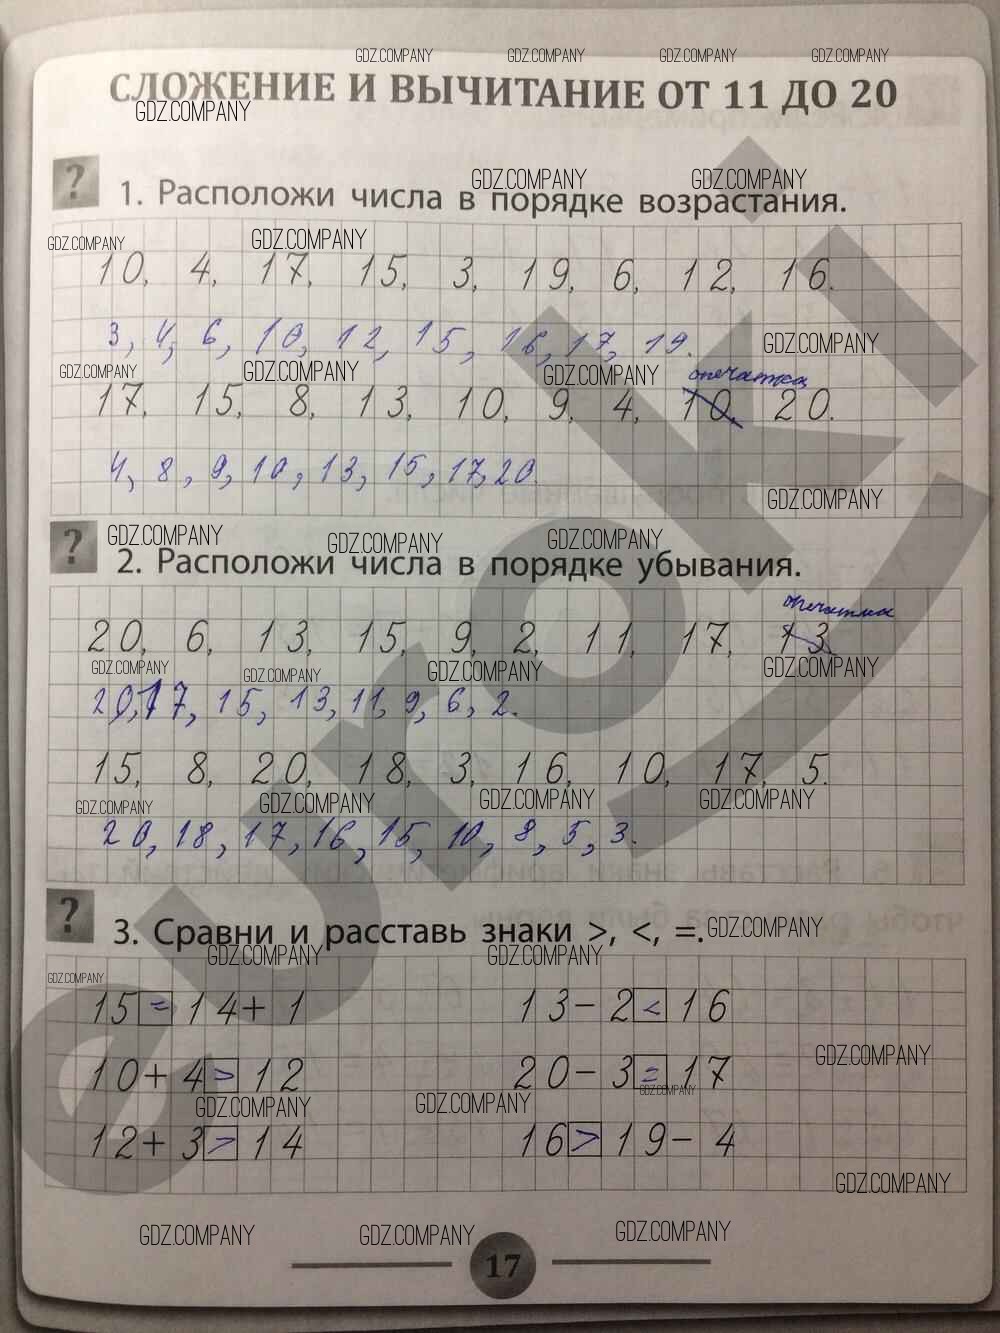 GDZ.COMPANY GDZ.COMPANY GDZ.COMPANY GDZ.COMPANY
СЛОЖЕНИЕ И ВЫЧИТАНИЕ ОТ 11 ДО 20
GDZ.COMPANY
GDZ.COMPANY GDZ.COMPANY
? 1. Расположи числа в порядке возрастания.
GDZ.COMPANY GDZ.COMPANY
10, 4, 17, 15, 3, 19, 6, 12, 16.
3, 4, 6, 10, 12, 15, 16, 17, 19.
GDZ.COMPANY
GDZ.COMPANY GDZ.COMPANY GDZ.COMPANY опечатка
17, 15, 8, 13, 10, 9, 4, 10, 20.
4, 8, 9, 10, 13, 15, 17, 20.
GDZ.COMPANY
GDZ.COMPANY GDZ.COMPANY GDZ.COMPANY
? 2. Расположи числа в порядке убывания.
опечатка
20, 6, 13, 15, 9, 2, 11, 17, 13
GDZ.COMPANY GDZ.COMPANY GDZ.COMPANY GDZ.COMPANY
20, 17, 15, 13, 11, 9, 6, 2.
15, 8, 20, 18, 3, 16, 10, 17, 5.
GDZ.COMPANY GDZ.COMPANY GDZ.COMPANY GDZ.COMPANY
20, 18, 17, 16, 15, 10, 8, 5, 3.
? 3. Сравни и расставь знаки >, <, =. GDZ.COMPANY
GDZ.COMPANY GDZ.COMPANY
GDZ.COMPANY
15 = 14 + 1 13 - 2 < 16
GDZ.COMPANY
10 + 4 > 12 20 - 3 = 17
GDZ.COMPANY
GDZ.COMPANY GDZ.COMPANY
12 + 3 > 14 16 > 19 - 4
GDZ.COMPANY
GDZ.COMPANY GDZ.COMPANY GDZ.COMPANY
17
euroki